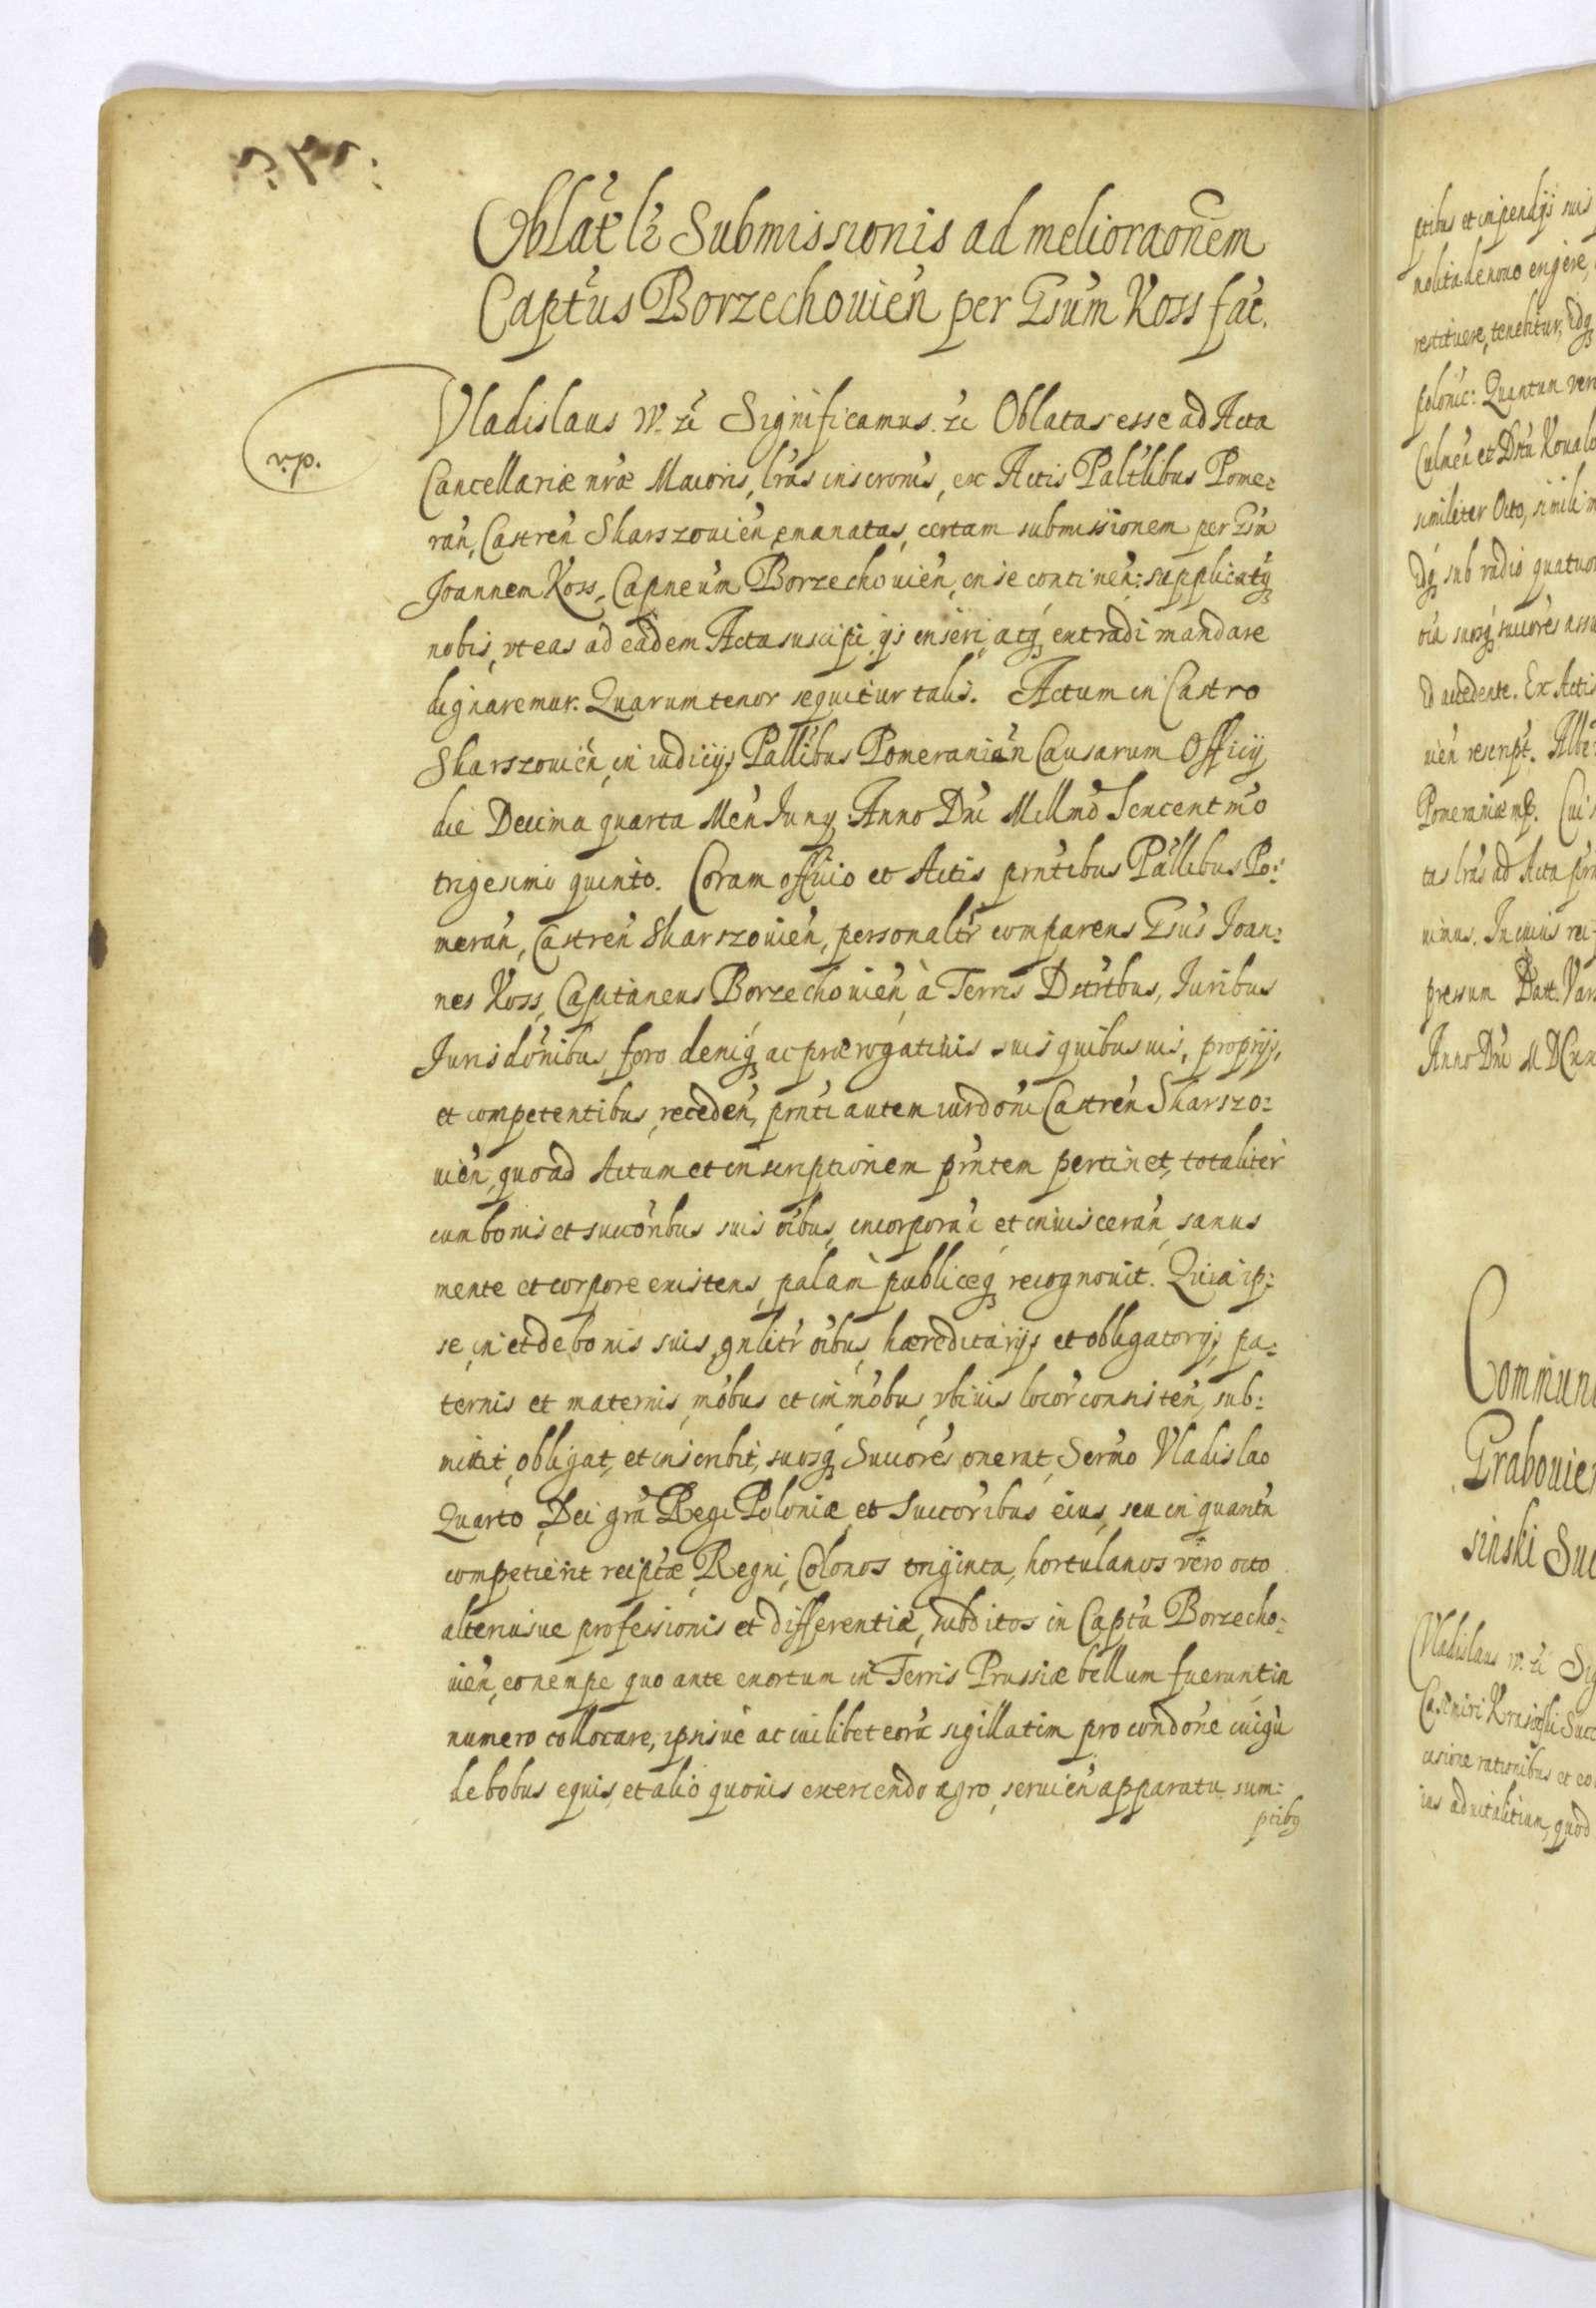 Oblat̃ lr̃ Submissionis ad meliorao͠nem
Capt̃us Borzechouień per Gsum̃ Koss fac̃.
v.p.
Vladislaus IV. ẽc Significamus. ẽc Oblatas esse ad Acta
Cancellariæ nr̃æ Maioris, lr̃as inscronis, ex Actis Paltlibus Pome:
rań, Castreń Skarszouień, emanatas, certam submissionem per Gsm̃
Joannem Koss, Capneum̃ Borzechouień, in se contineń: supplicatq
nobis, vt eas ad eadem Acta suscipi, ijs inseri, atq extradi mandare
dignaremur. Quarum tenor sequitur talis. Actum in Castro
Skarszouień, in iudicijs Palłibus Pomeraniań Causarum Officij
die Decima quarta Meń Junij Anno Dńi Mllmo Sexcentmo
trigesimo quinto. Coram officio et Actis prntibus Pallibus Po:
merań, Castreń Skarszouień, personaltr̃ comparens Gsus̃ Joan:
nes Koss, Capitaneus Borzechouień, à Terris Dstrtbus, Juribus
Jurisdonibus, foro deniq ac prærogatiuis suis quibusuis, proprijs,
et competentibus, recedeń, prnti autem iurdoni Castreń Skarszo:
uień, quoad Actum et inscriptionem prntem pertinet, totaliter
cum bonis et succoribus suis oibus, incorporań et inuiscerań, sanus
mente et corpore existens, palam publiceq recognouit. Quia ip:
se, in et de bonis suis, gnlitr oibus, hæreditarijs et obligatorijs, pa:
ternis et maternis, mobus et immobus, vbiuis locor consisteń, sub:
mittit, obligat, et inscribit, suosq Succores onerat, Sermo Vladislao
Quarto Dei gra Regi Poloniæ, et Succoribus eius, seu in quantu
competierit reiptæ, Regni, Colonos triginta, hortulanos vero octo
alteriusue professionis et differentiæ, subditos in Captu Borzecho:
uień, eo nempe quo ante exortum in Terris Prussiæ bellum fuerunt in
numero collocare, ipsisue ac cuilibet eorũ sigillatim pro condone cuiqu
de bobus equis, et alio quouis exercendo agro, seruień apparatu, sum:
ptibq
ptibus et inpendijs suis
nolita de nouo erigere,
restituere, tenebitur, Idq
polonic: Quantum ver
Culneń et Dstu Koualo
similiter Octo, simili m
Idq sub vadio quatuor
suosq succores
Ex Actis
uień rescript. Alber
Pomeraniæ mp. Cui
tas lras ad Acta prn
uimus. In cuius rei
pressum Dat: Vars
Anno Dni MDCxx
Commun
Grabouien
sinski Suc
Vladislaus IV. ẽc Sig
Casimiri Krasiński Succ
cisione rationibus et co
ius aduitalitium, quod